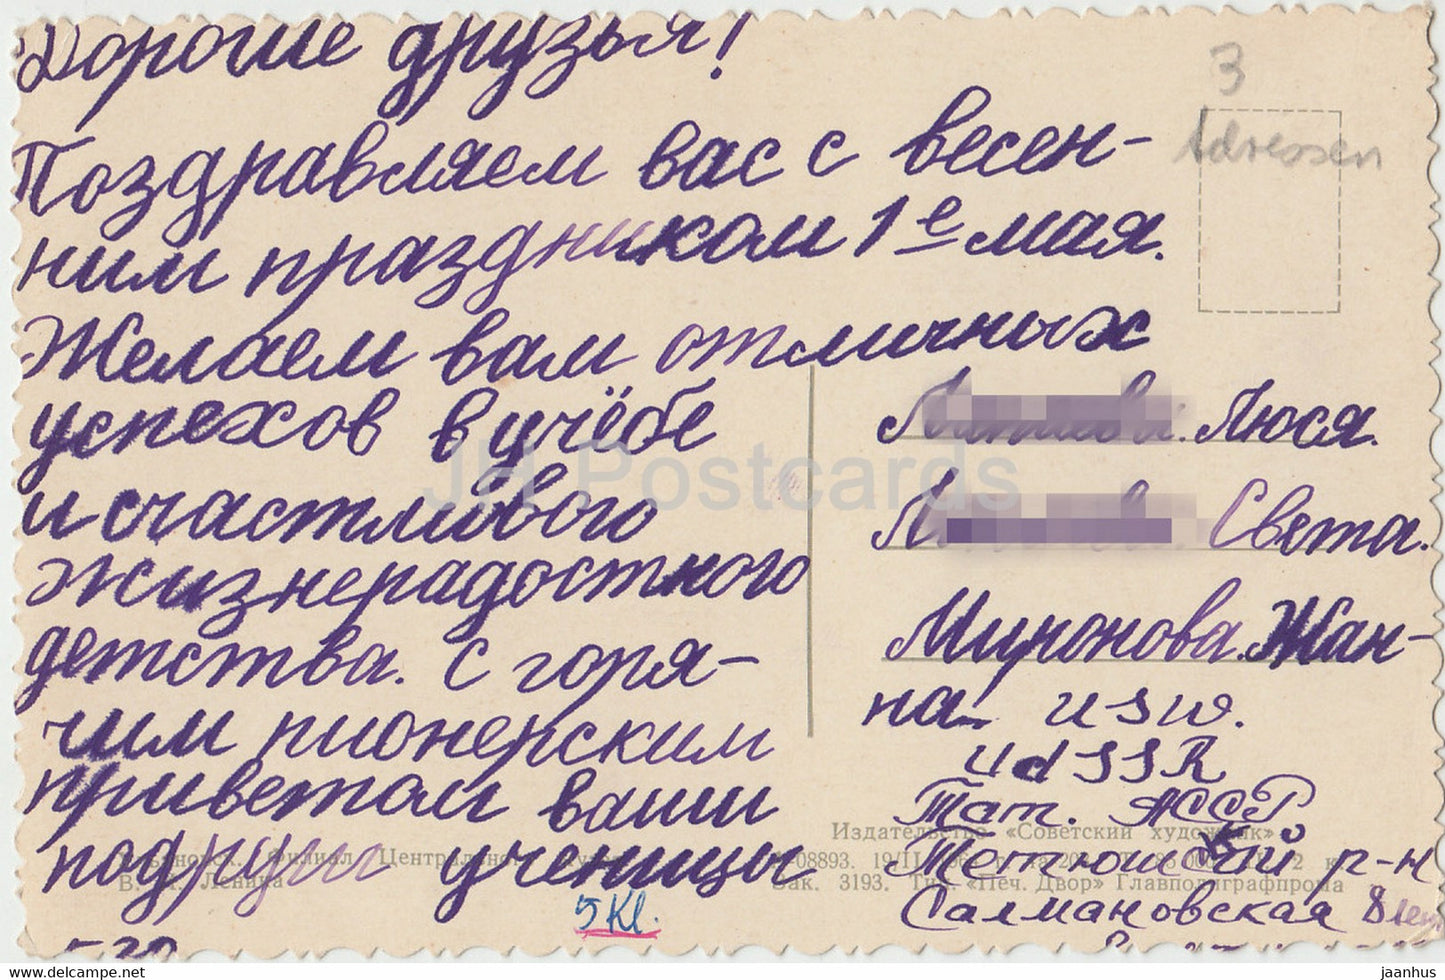 Дорогие друзья!
Поздравляем вас с весен-
ним праздником 1е мая.
Желаем вам отличных
успехов в учёбе
и счастливого
жизнерадостного
детства. С горя-
чим пионерским
приветом ваши
подруги ученицы
5 Kl.
3
Adressen
Люся.
Света.
Миронова Жан-
на usw.
UdSSR
Тат. АССР
Тетюшский р-н
Салмановская 8
Издательство «Советский художник»
Ульяновск. Филиал Центрального музея
В. И. Ленина
Зак. 3193. Тип. «Печ. Двор» Главполиграфпрома
JH Postcards
delcampe.net
jaanhus